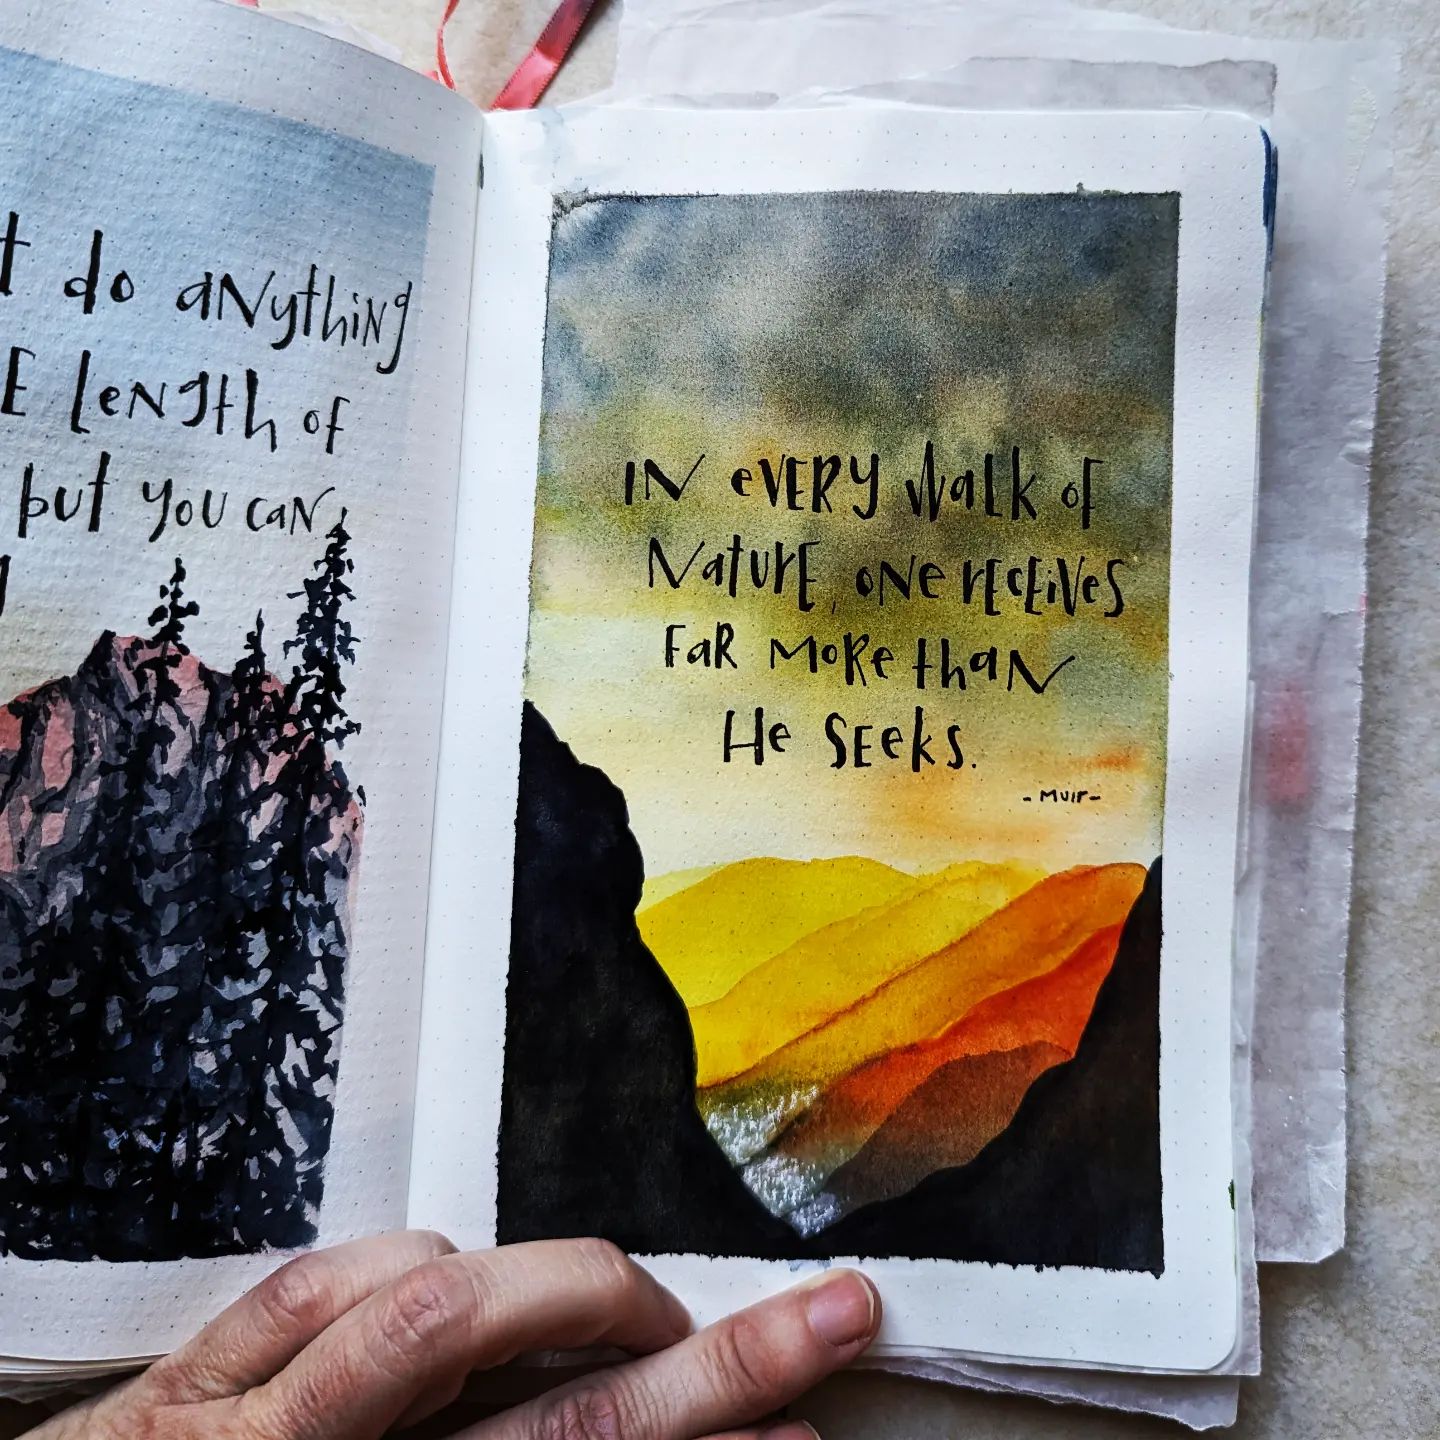 t do anything
E length of
but you can
IN eVERY walk of
Nature, oNe rECEiVES
FaR MoRe thaN
He SEEks.
- Muir -